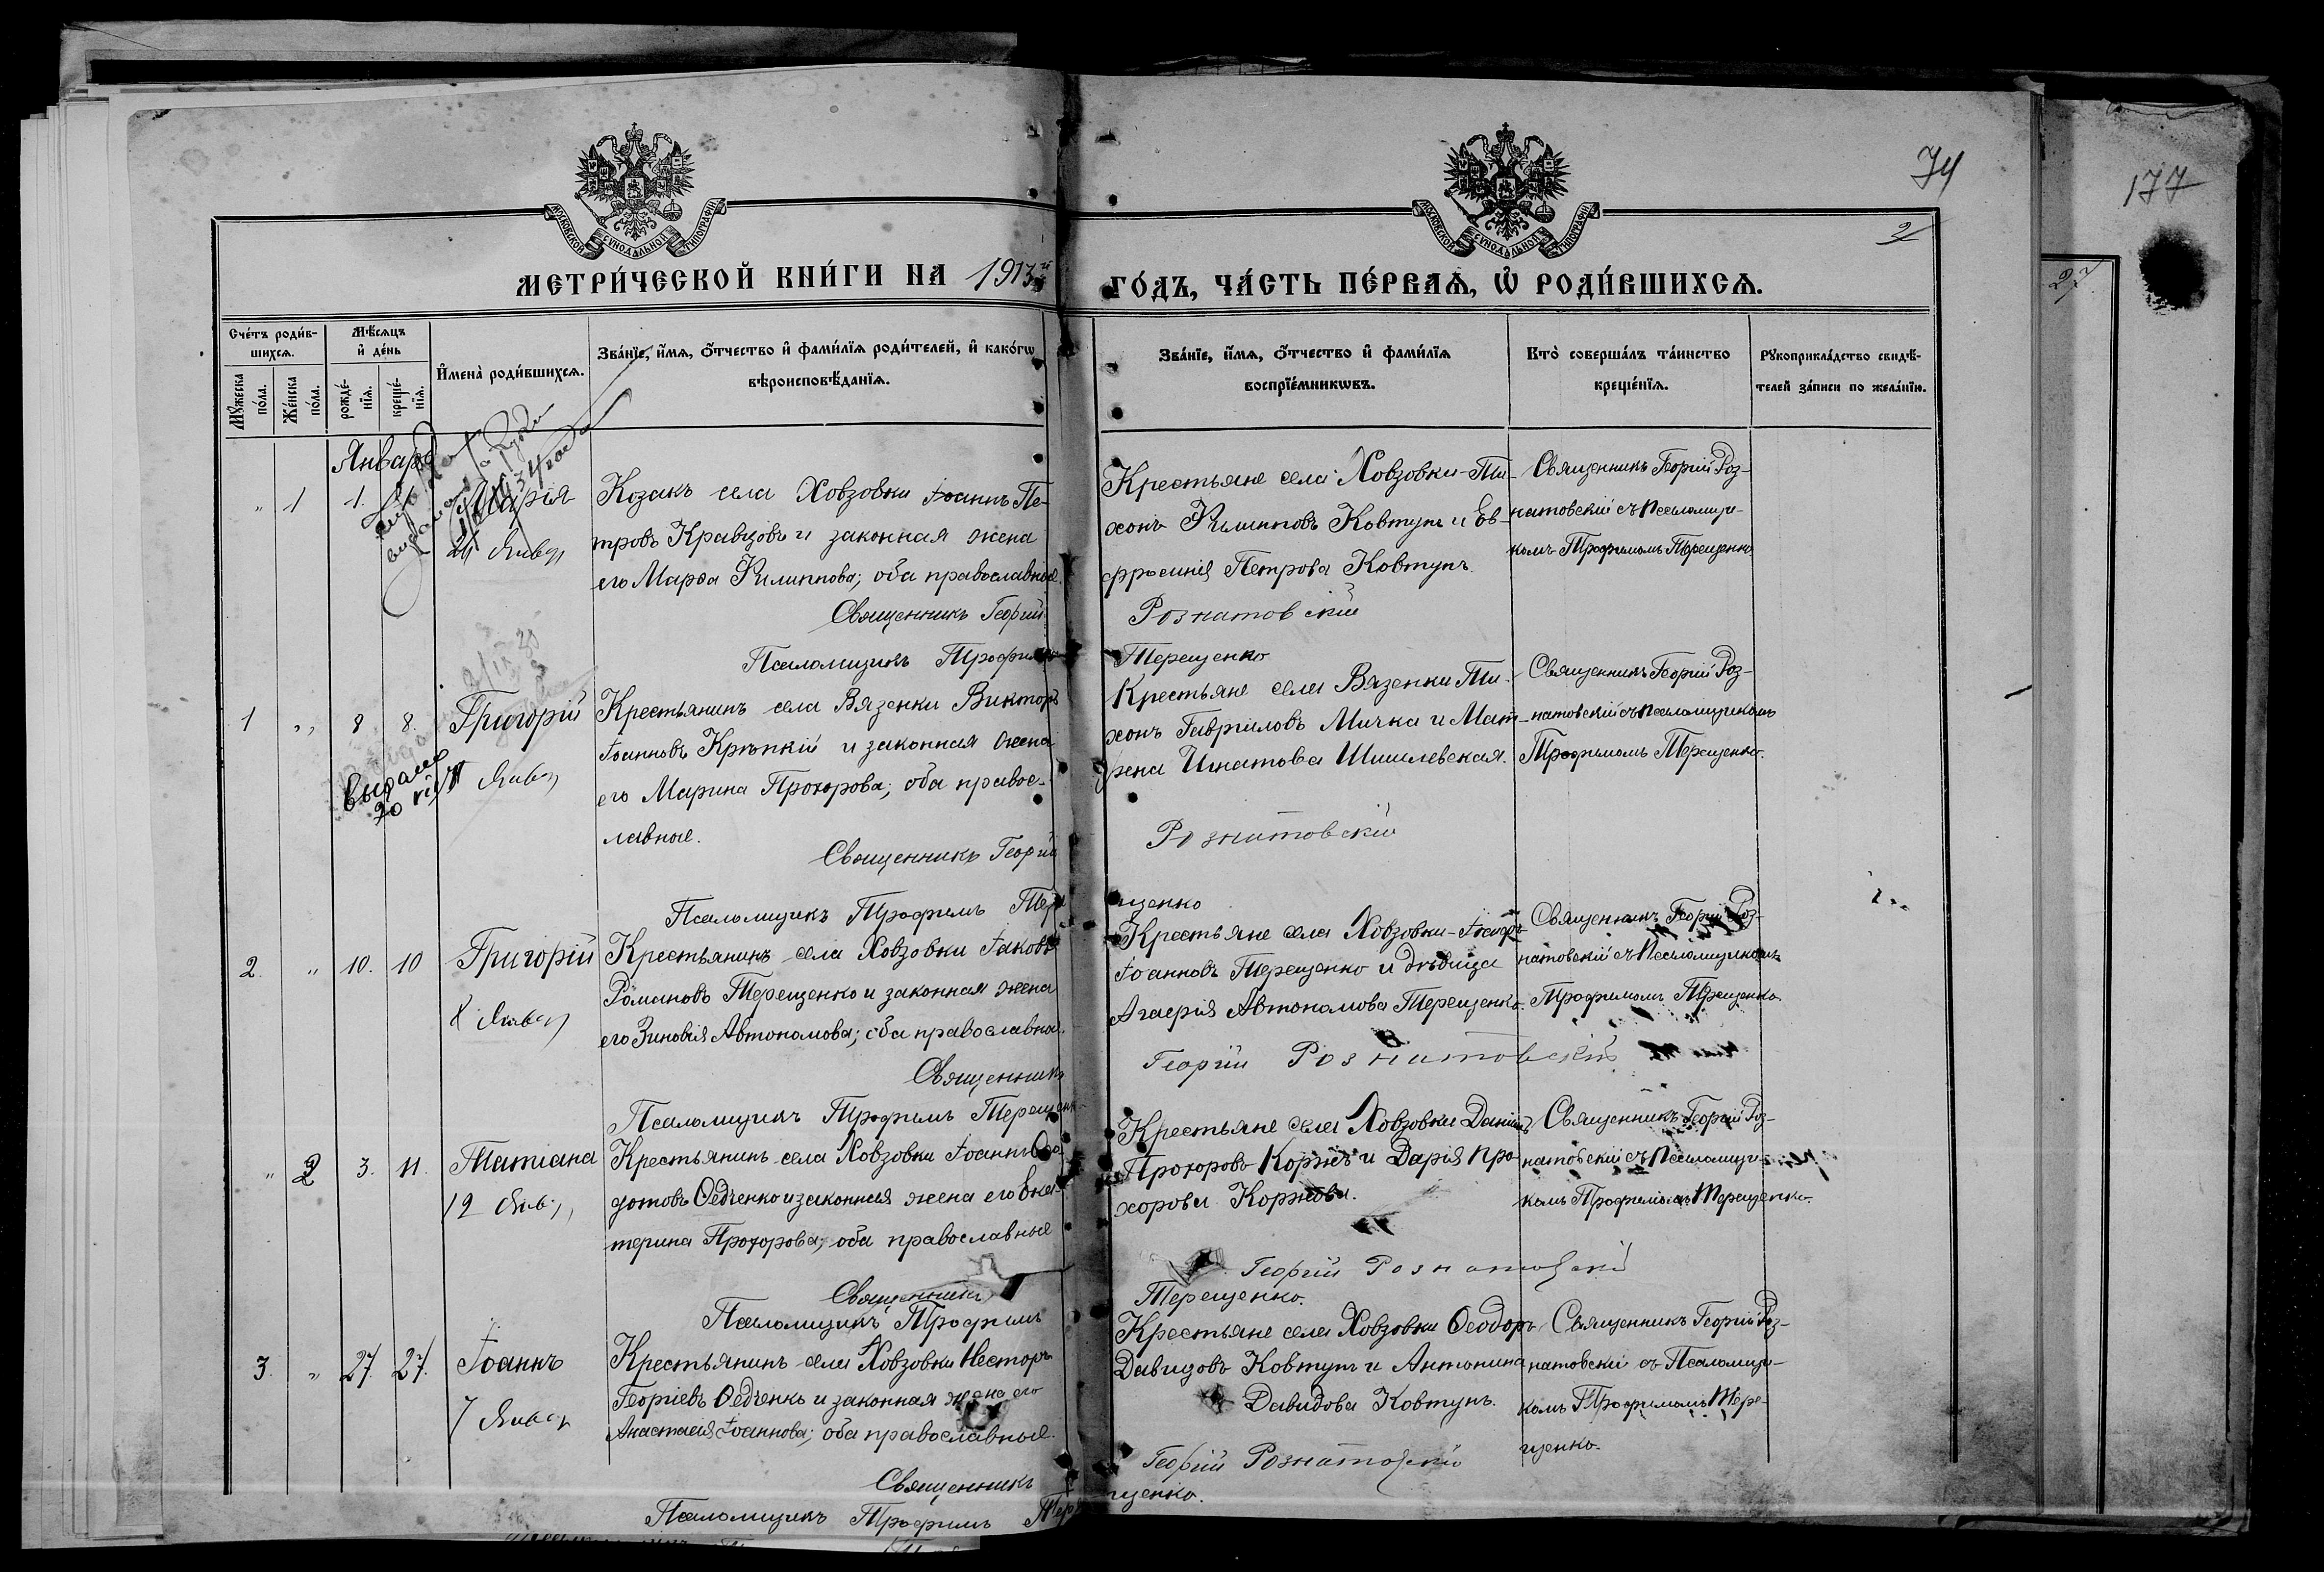 74
177
2
27
МОСКОВСКОЙ СѴНОДАЛЬНОЙ ТИПОГРАФІИ
МОСКОВСКОЙ СѴНОДАЛЬНОЙ ТИПОГРАФІИ
МЕТРИ́ЧЕСКОЙ КНИ́ГИ НА 1913й
ГО́ДЪ, ЧА́СТЬ ПЕ́РВАѦ, Ѡ҆ РОДИ́ВШИХСѦ.
Сче́тъ роди́в-
шихсѧ.
Мѣ́сѧцъ
и҆ де́нь
Мꙋ́жеска по́ла.
Же́нска по́ла.
рожде́-
нїѧ.
креще́-
нїѧ.
И҆мена̀ роди́вшихсѧ.
Зва́нїе, и҆́мѧ, ѻ҆́тчество и҆ фами́лїѧ роди́телей, и҆ како́гѡ
вѣроисповѣ́данїѧ.
Зва́нїе, и҆́мѧ, ѻ҆́тчество и҆ фами́лїѧ
воспрїе́мникѡвъ.
Кто̀ соверша́лъ та́инство
креще́нїѧ.
Рꙋкоприкла́дство свидѣ́-
телей за́писи по жела́нїю.
Январь
" 1 1. Марія
24 Январ
Козакъ села Ховзовки Іоаннъ Пе-
тровъ Кравцовъ и законная жена
его Марфа Филиппова; оба православные.
Священникъ Георгій
Псаломщикъ Трофимъ
Крестьяне села Ховзовки-Ти-
хонъ Филипповъ Ковтунъ и Ев-
фросинія Петрова Ковтунъ
Рознатовскій
Терещенко
Священникъ Георгій Роз-
натовскій съ Псаломщи-
комъ Трофимомъ Терещенко
1 " 8 8. Григорій
Январ
Выдано
20
Крестьянинъ села Вязенки Викторъ
Іоанновъ Крѣпкій и законная жена
его Марина Прохорова; оба правос-
лавные.
Священникъ Георгій
Псаломщикъ Трофимъ Тере
Крестьяне села Вязенки Ти-
хонъ Гавриловъ Мичка и Мат-
рена Игнатова Шишлевская.
Рознатовскій
щенко
Священникъ Георгій Роз-
натовскій съ Псаломщикомъ
Трофимомъ Терещенко.
2. " 10. 10 Григорій
8 Январ
Крестьянинъ села Ховзовки Іаковъ
Романовъ Терещенко и законная жена
его Зиновія Автономова; оба православные.
Священникъ
Псаломщикъ Трофимъ Терещенко
Крестьяне села Ховзовки-Іосифъ
Іоанновъ Терещенко и дѣвица
Агафія Автономова Терещенко.
Георгій Рознатовскій
Священникъ Георгій Роз-
натовскій съ Псаломщикомъ
Трофимомъ Терещенко.
" 2 3. 11. Татіана
12 Январ
Крестьянинъ села Ховзовки Іоаннъ Ѳео-
дотовъ Ѳедченко и законная жена его Ека-
терина Прохорова; оба православные
Священникъ
Псаломщикъ Трофимъ
Крестьяне села Ховзовки Даніилъ
Прохоровъ Коржъ и Дарія Про-
хорова Коржова.
Георгій Рознатовскій
Терещенко.
Священникъ Георгій Роз-
натовскій съ Псаломщи-
комъ Трофимомъ Терещенко.
3. " 27. 27. Іоаннъ
7 Январ
Крестьянинъ села Ховзовки Несторъ
Георгіевъ Ѳедченко и законная жена его
Анастасія Іоаннова; оба православные.
Священникъ
Псаломщикъ Трофимъ Тере
Крестьяне села Ховзовки Ѳеодоръ
Давидовъ Ковтунъ и Антонина
Давидова Ковтунъ.
Георгій Рознатовскій
щенко.
Священникъ Георгій Роз-
натовскій съ Псаломщи-
комъ Трофимомъ Тере-
щенко.